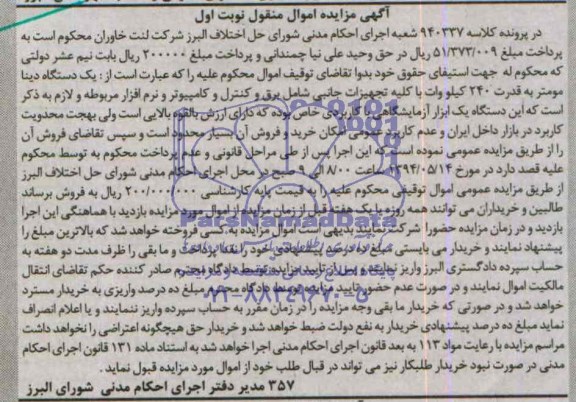 آگهی مزایده اموال منقول نوبت اول
در پرونده کلاسه ۹۴۰۳۳۷ شعبه اجرای احکام مدنی شورای حل اختلاف البرز شرکت لنت خاوران محکوم است به
پرداخت مبلغ ۵۱/۳۷۳/۰۰۹ ریال در حق وحید علی نیا چمندانی و پرداخت مبلغ ۲۰۰۰۰۰ ریال بابت نیم عشر دولتی
که محکوم له جهت استیفای حقوق خود بدوا تقاضای توقیف اموال محکوم علیه را که عبارت است از : یک دستگاه دینا
مومتر به قدرت ۲۴۰ کیلو وات با کلیه تجهیزات جانبی شامل برق و کنترل و کامپیوتر و نرم افزار مربوطه و لازم به ذکر
است که این دستگاه یک ابزار آزمایشگاهی با کاربردی خاص بوده که دارای ارزش بالقوه بالایی است ولی بهجت محدودیت
کاربرد در بازار داخل ایران و عدم کاربرد عمومی امکان خرید و فروش آن بسیار محدود است و سپس تقاضای فروش آن
را از طریق مزایده عمومی نموده است که این اجرا پس از طی مراحل قانونی و عدم پرداخت محکوم به توسط محکوم
علیه قصد دارد در مورخ ۱۳۹۴/۰۵/۱۴ ساعت ۸/۰۰ الی ۹ صبح در محل اجرای احکام مدنی شورای حل اختلاف البرز
از طریق مزایده عمومی اموال توقیفی محکوم علیه را به قیمت پایه کارشناسی ۲۰۰/۰۰۰/۰۰۰ ریال به فروش برساند
طالبین و خریداران می توانند همه روزه تا یک هفته قبل از زمان مزایده از اموال مورد مزایده بازدید با هماهنگی این اجرا
بازدید و در زمان مزایده حضورا شرکت نمایند بدیهی است اموال مزایده به کسی فروخته خواهد شد که بالاترین مبلغ را
پیشنهاد نمایند و خریدار می بایستی مبلغ ده درصد پیشنهادی خود را نقدا پرداخت و ما بقی را ظرف مدت دو هفته به
حساب سپرده دادگستری البرز واریز نمایند و پس از تایید مزایده توسط دادگاه محترم صادر کننده حکم تقاضای انتقال
مالکیت اموال نمایند و در صورت عدم حضور تایید مزایده توسط دادگاه محترم مبلغ ده درصد واریزی به خریدار مسترد
خواهد شد و در صورتی که خریدار ما بقی وجه مزایده را در زمان مقرر به حساب سپرده واریز ننمایند و یا اعلام انصراف
نماید مبلغ ده درصد پیشنهادی خریدار به نفع دولت ضبط خواهد شد و خریدار حق هیچگونه اعتراضی را نخواهد داشت
مراسم مزایده با رعایت مواد ۱۱۳ به بعد قانون اجرای احکام مدنی اجرا خواهد شد به استناد ماده ۱۳۱ قانون اجرای احکام
مدنی در صورت نبود خریدار طلبکار نیز می تواند در قبال طلب خود از اموال مورد مزایده قبول نماید .
۳۵۷ مدیر دفتر اجرای احکام مدنی شورای البرز
ParsNamadData
۰۲۱-۸۸۳۴۹۶۷۰-۵